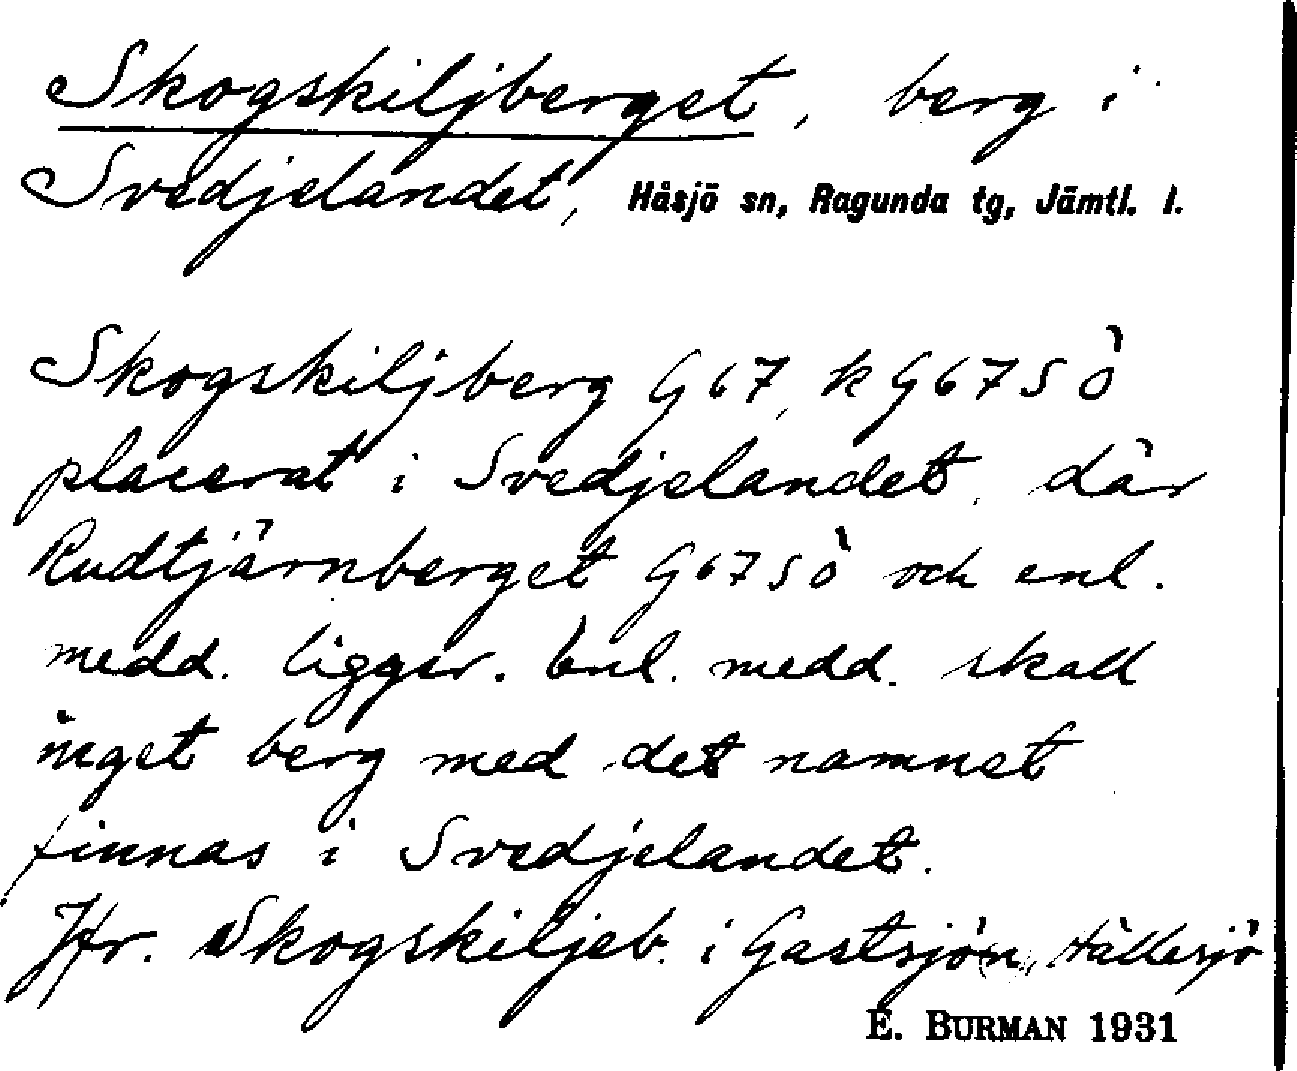 Skogskiljberget, berg i
Svedjelandet, Håsjö sn, Ragunda tg, Jämtl. l.
Skogskiljberg G67, k G67SÖ
placerat i Svedjelandet, där
Rudtjärnberget G67SÖ och enl.
medd. ligger. Enl. medd. skall
inget berg med det namnet
finnas i Svedjelandet.
Jfr. Skogskiljeb. i Gastsjön, Hällesjö
E. BURMAN 1931